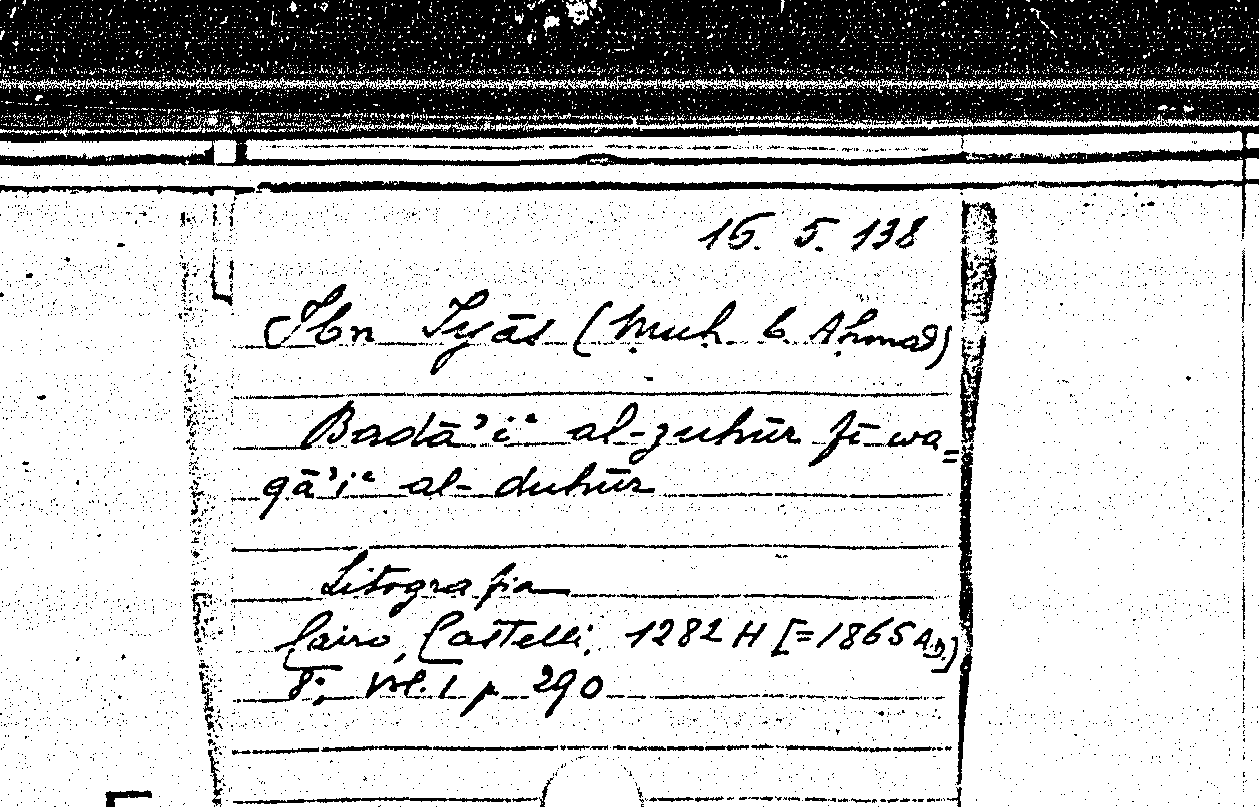 15. 5. 138
Ibn Iyās (Muḥ. b. Aḥmad)
Badā'i‘ al-zuhūr fī wa=
qā'i‘ al-duhūr
Litografia
Cairo, Castelli, 1282 H [=1865 A.D.]
8°, Vol. I p. 290